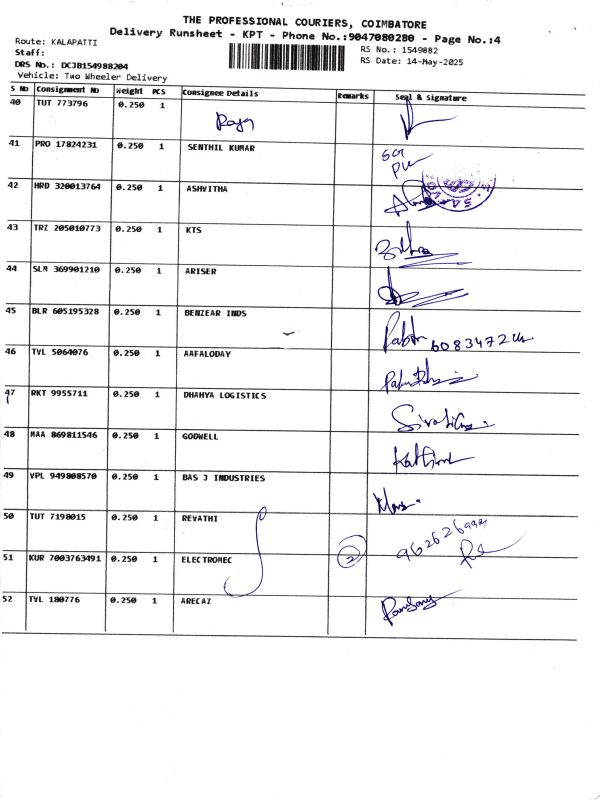 THE PROFESSIONAL COURIERS, COIMBATORE
Delivery Runsheet - KPT - Phone No.:9047080280 - Page No.:4
Route: KALAPATTI
RS No.: 1549882
Staff:
RS Date: 14-May-2025
DRS No.: DCJB154988204
Vehicle: Two Wheeler Delivery
S No Consignment No Weight PCS Consignee Details Remarks Seal & Signature
40 TUT 773796 0.250 1 Raja
41 PRO 17824231 0.250 1 SENTHIL KUMAR
42 HRD 320013764 0.250 1 ASHVITHA
43 TRZ 205010773 0.250 1 KTS
44 SLM 369901210 0.250 1 ARISER
45 BLR 605195328 0.250 1 BENZEAR INDS
46 TVL 5064076 0.250 1 AAFALODAY
47 RKT 9955711 0.250 1 DHAHYA LOGISTICS
48 MAA 869811546 0.250 1 GODWELL
49 VPL 949808570 0.250 1 BAS J INDUSTRIES
50 TUT 7198015 0.250 1 REVATHI
51 KUR 7003763491 0.250 1 ELECTROMEC 2
52 TVL 180776 0.250 1 ARECAZ